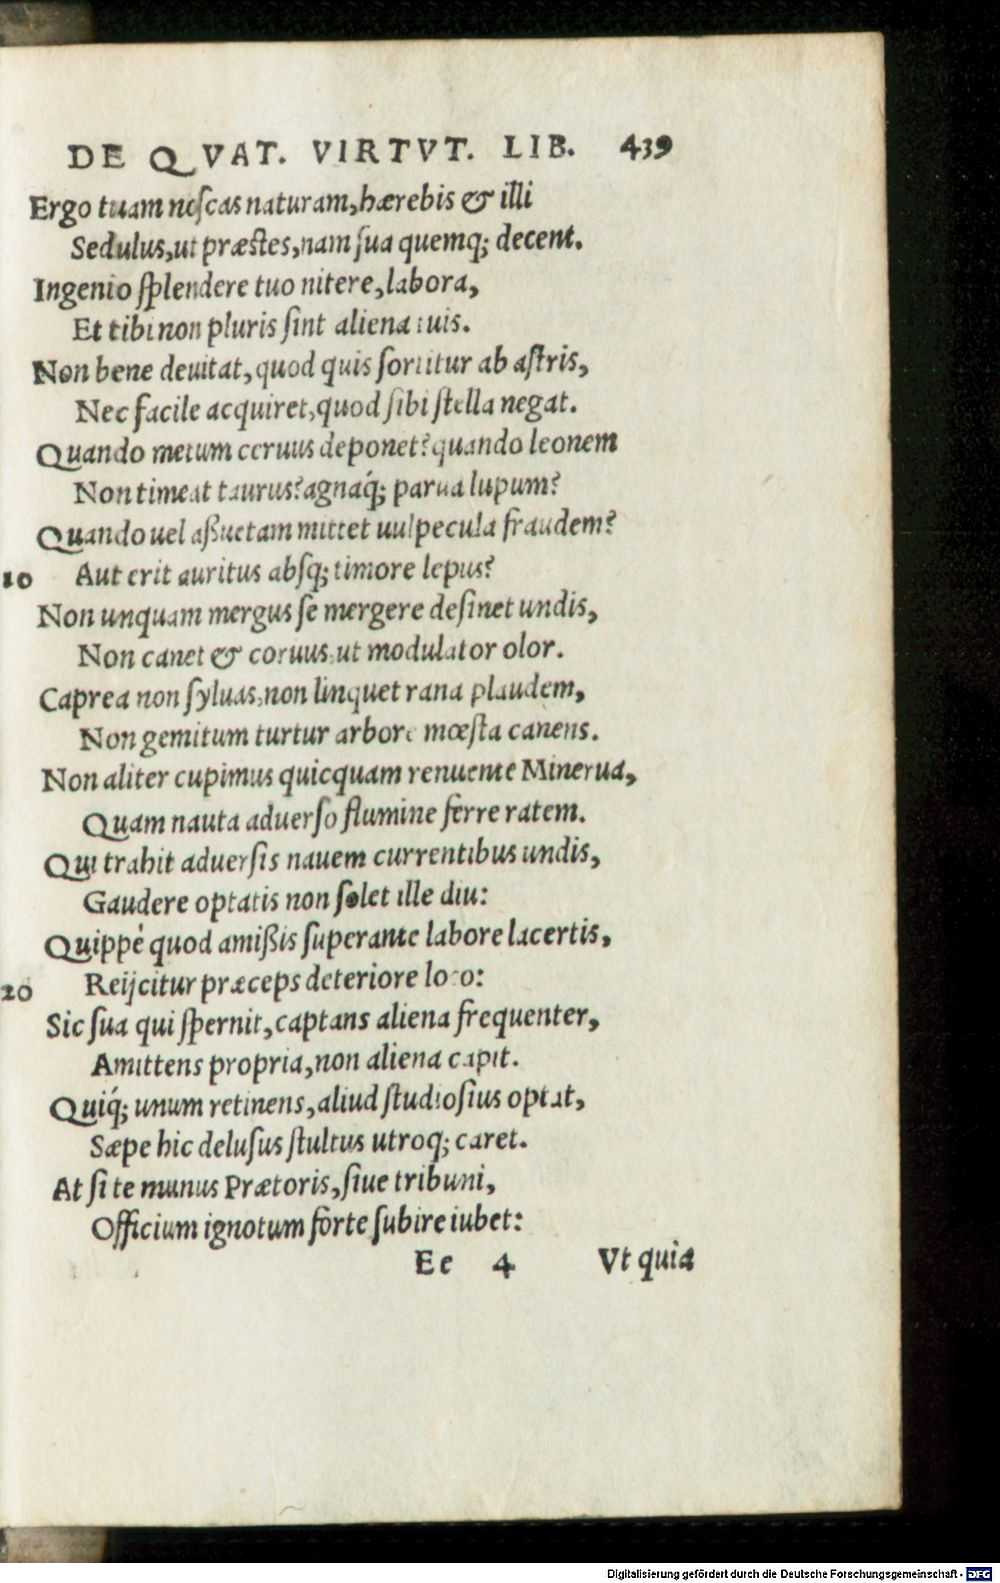 DE QVAT. VIRTVT. LIB. 439
Ergo tuam noſcas naturam, hærebis & illi
Sedulus, ut præſtes, nam ſua quemq; decent.
Ingenio ſplendere tuo nitere, labora,
Et tibi non pluris ſint aliena tuis.
Non bene deuitat, quod quis ſortitur ab aſtris,
Nec facile acquiret, quod ſibi ſtella negat.
Quando metum ceruus deponet? quando leonem
Non timeat taurus? agnaq́; parua lupum?
Quando uel aßuetam mittet uulpecula fraudem?
10 Aut erit auritus absq; timore lepus?
Non unquam mergus ſe mergere deſinet undis,
Non canet & coruus, ut modulator olor.
Caprea non ſyluas, non linquet rana plaudem,
Non gemitum turtur arbore mœſta canens.
Non aliter cupimus quicquam renuente Minerua,
Quam nauta aduerſo flumine ferre ratem.
Qui trahit aduerſis nauem currentibus undis,
Gaudere optatis non ſolet ille diu:
Quippè quod amißis ſuperante labore lacertis,
20 Reijcitur præceps deteriore loco:
Sic ſua qui ſpernit, captans aliena frequenter,
Amittens propria, non aliena capit.
Quiq́; unum retinens, aliud ſtudioſius optat,
Sæpe hic deluſus ſtultus utroq; caret.
At ſi te munus Prætoris, ſiue tribuni,
Officium ignotum forte ſubire iubet:
Ee 4 Vt quia
Digitalisierung gefördert durch die Deutsche Forschungsgemeinschaft - DFG